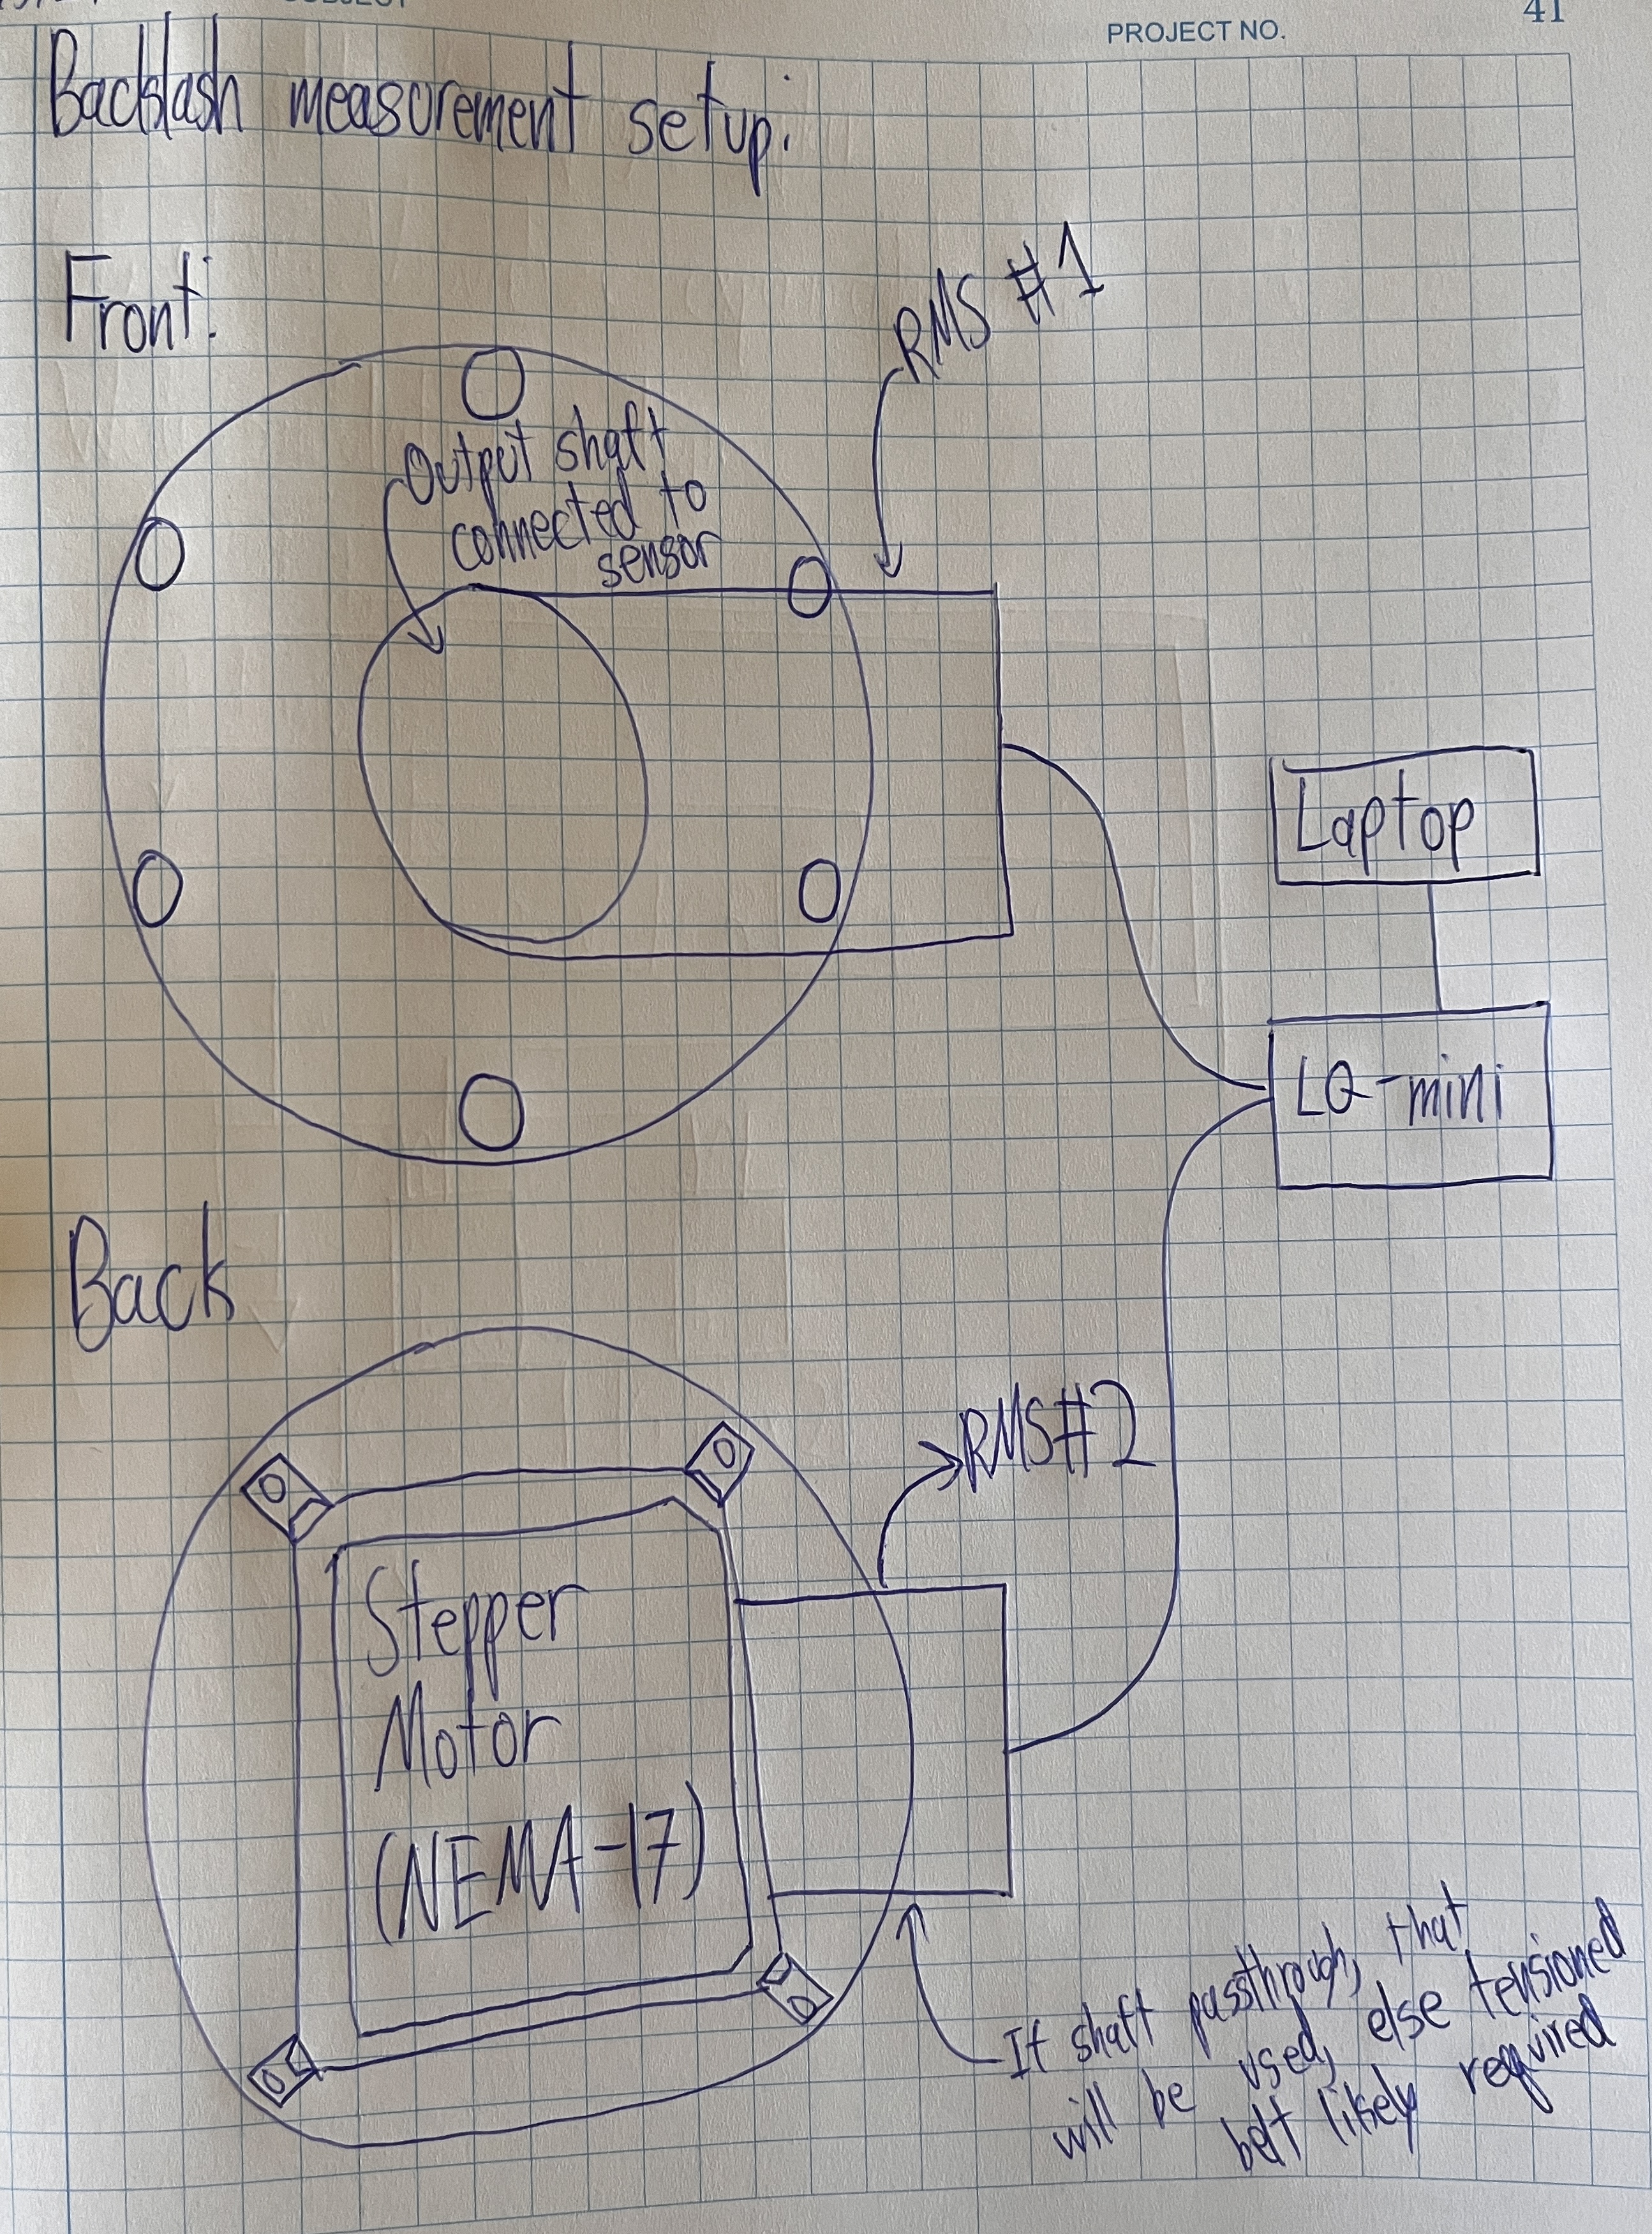 PROJECT NO.
41
Backlash measurement setup:
Front:
RMS #1
Output shaft
connected to
sensor
Laptop
LQ-mini
Back
RMS#2
Stepper
Motor
(NEMA-17)
If shaft passthrough, that
will be used, else tensioned
belt likely required